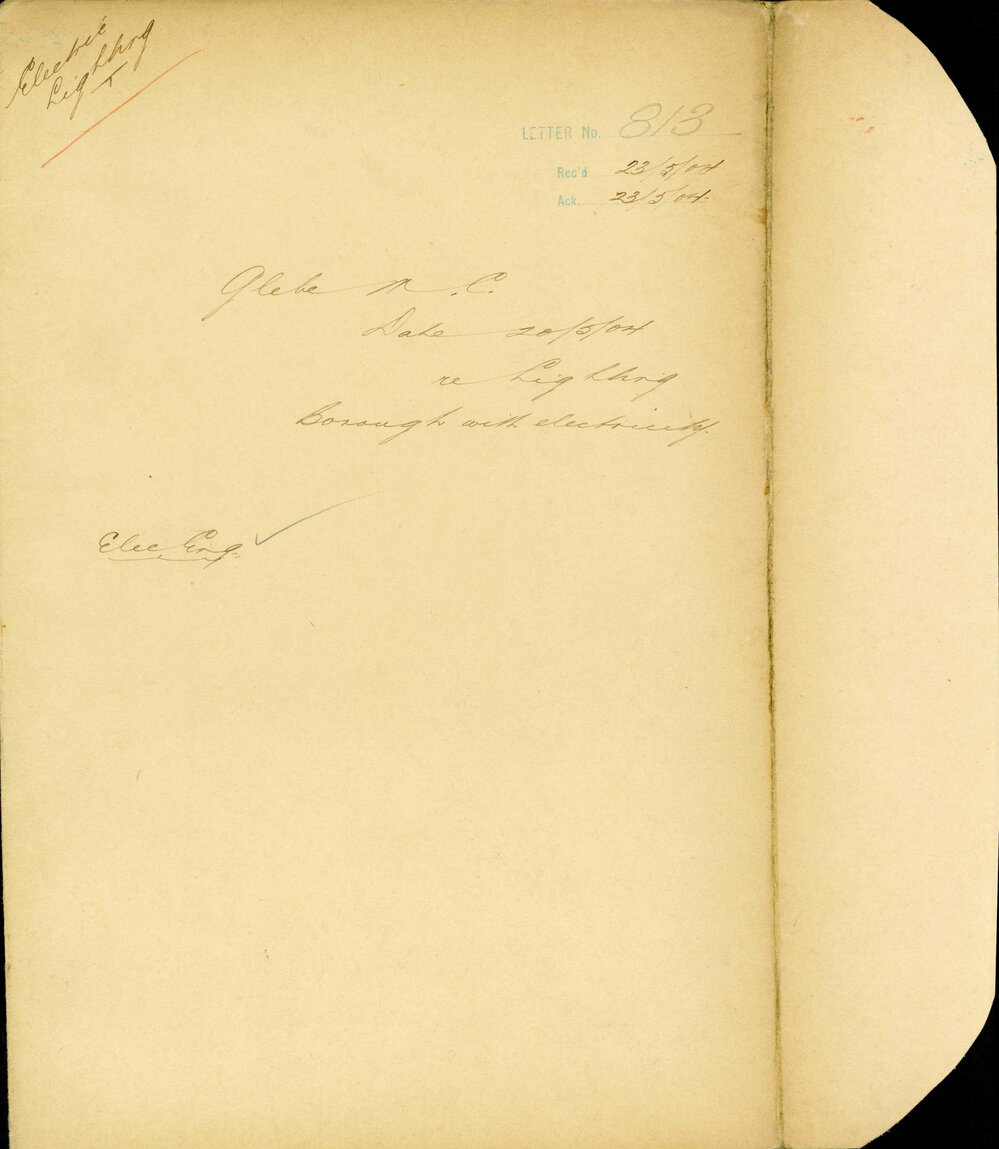 Electric
Lighting
LETTER No. 813
Rec'd 23/5/04
Ack. 23/5/04
Glebe M.C.
Date 20/5/04
re Lighting
Borough with electricity.
Elec. Eng.